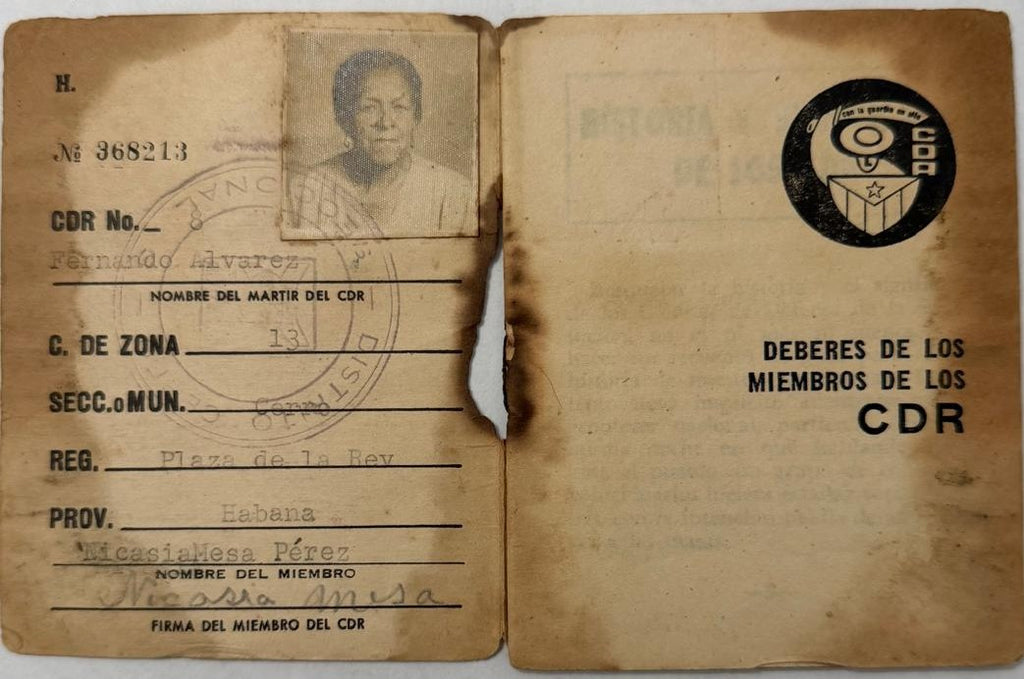 H.
№ 368213
CDR No. 8
Fernando Alvarez
NOMBRE DEL MARTIR DEL CDR
C. DE ZONA 13
SECC.oMUN. Cerro
REG. Plaza de la Rev
PROV. Habana
NicasiaMesa Pérez
NOMBRE DEL MIEMBRO
Nicasia Mesa
FIRMA DEL MIEMBRO DEL CDR
con la guardia en alto
CDR
DEBERES DE LOS
MIEMBROS DE LOS
CDR